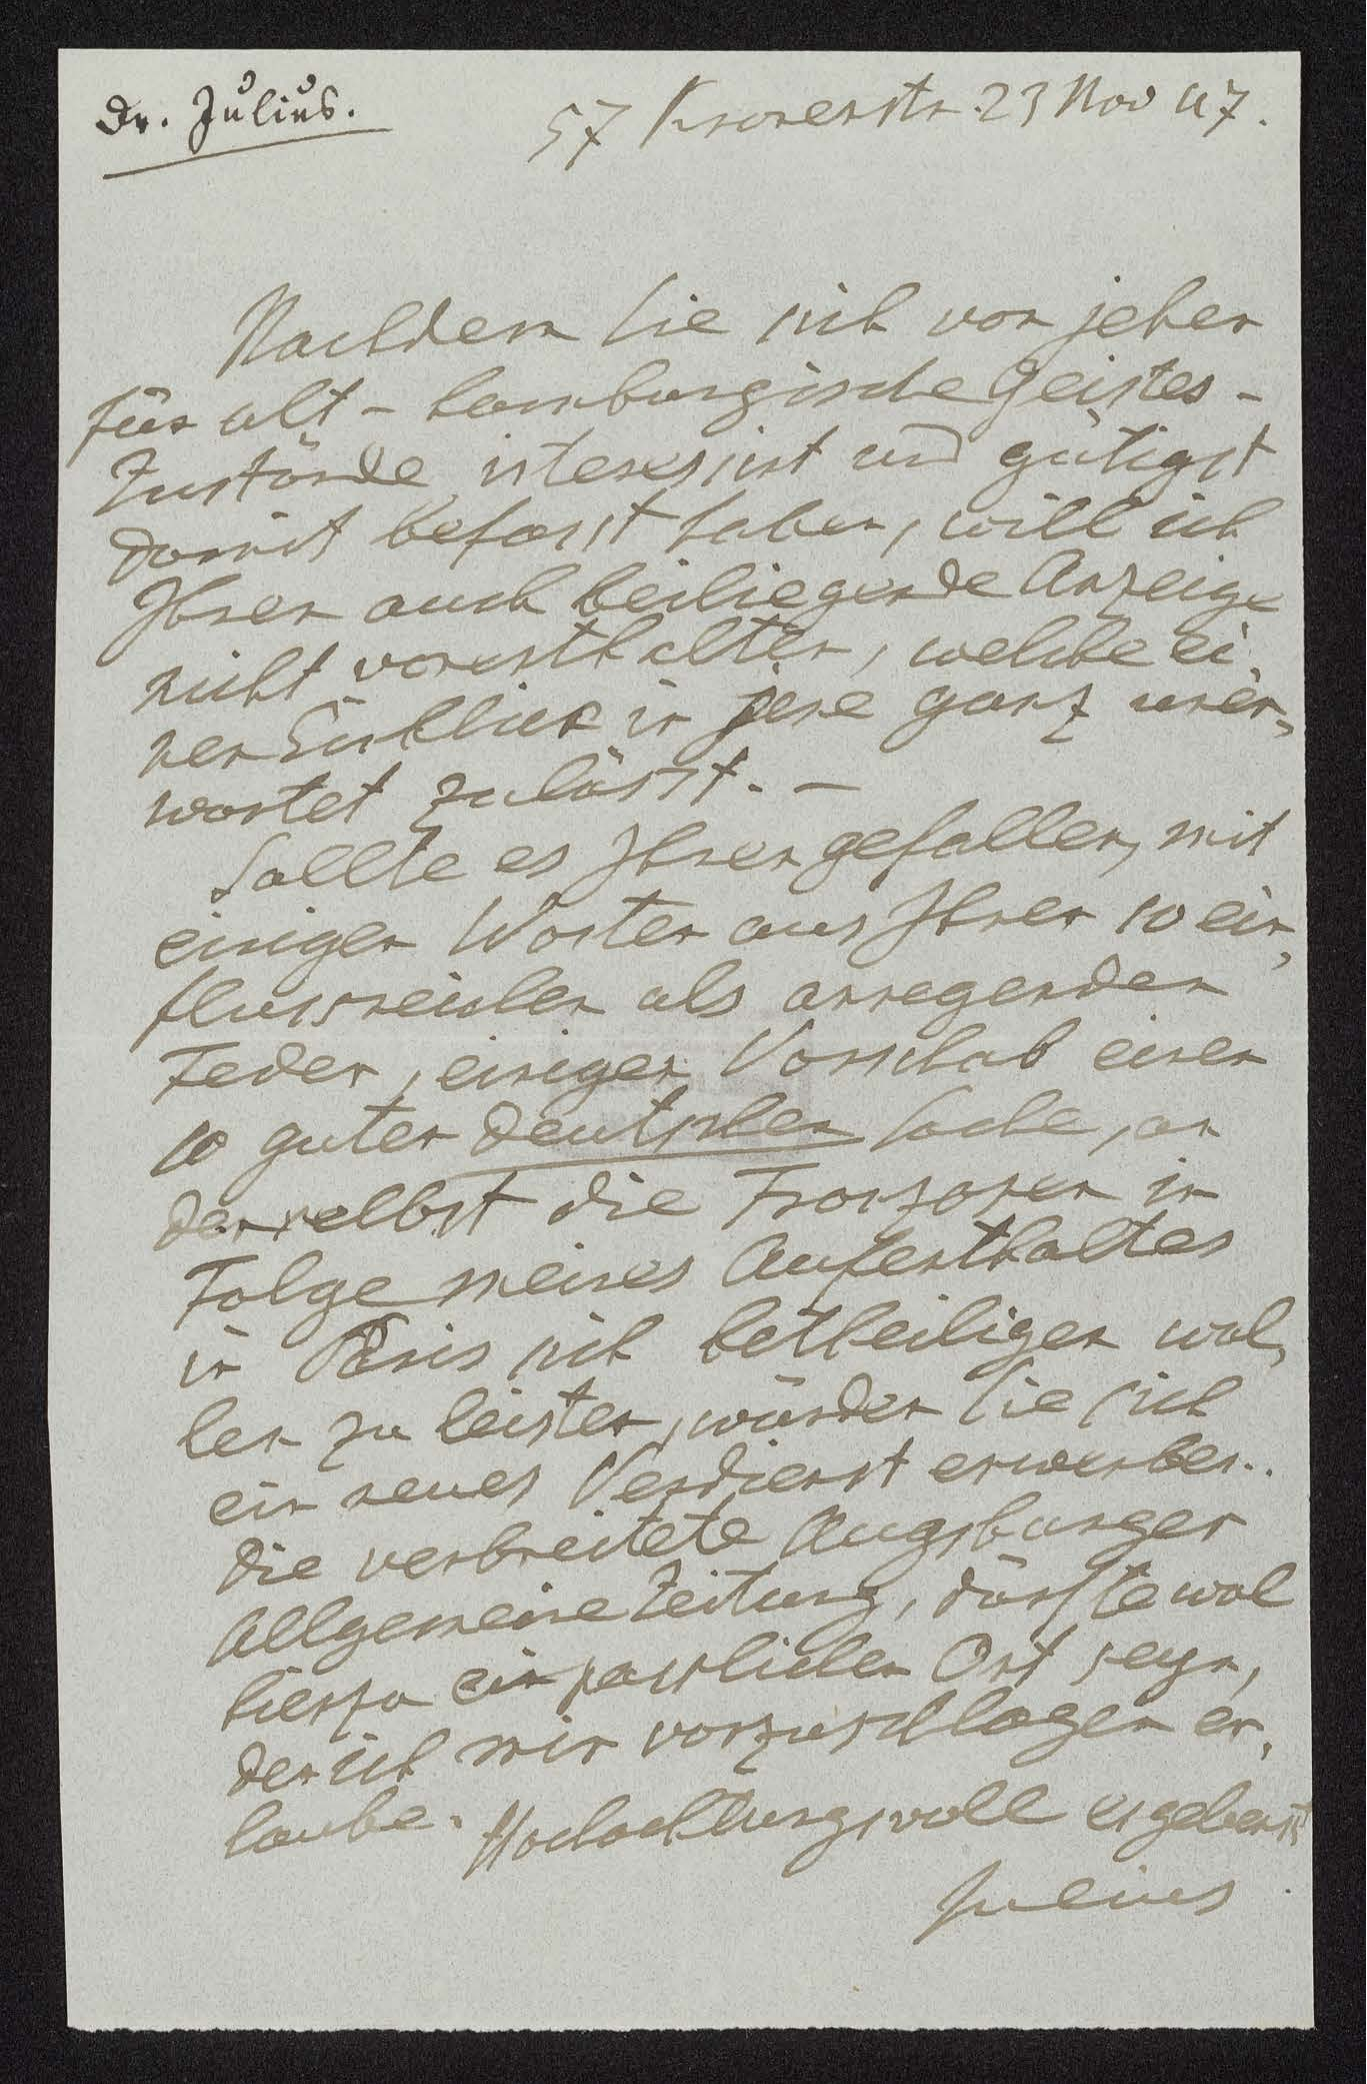 Dr. Julius.
57 Kronenstr. 23 Nov 47.
Nachdem Sie sich von jeher
für alt-hamburgische Geistes-
Zustände interessirt und gütigst
damit befasst haben, will ich
Ihnen auch beiliegende Anzeige
nicht vorenthalten, welche ei-
nen Einblick in jene ganz uner-
wartet zulässt. –
Sollte es Ihnen gefallen, mit
einigen Worten aus Ihrer so ein-
flussreichen als anregenden
Feder, einigen Vorschub einer
so guten deutschen Sache, an
der selbst die Franzosen in
Folge meines Aufenthaltes
in Paris sich betheiligen wol-
len zu leisten, würden Sie sich
ein neues Verdienst erwerben.
Die verbreitete Augsburger
Allgemeine Zeitung, dürfte wol
hierzu ein passlicher Ort seyn,
den ich mir vorzuschlagen er-
laube. Hochachtungsvoll ergebenst
Julius